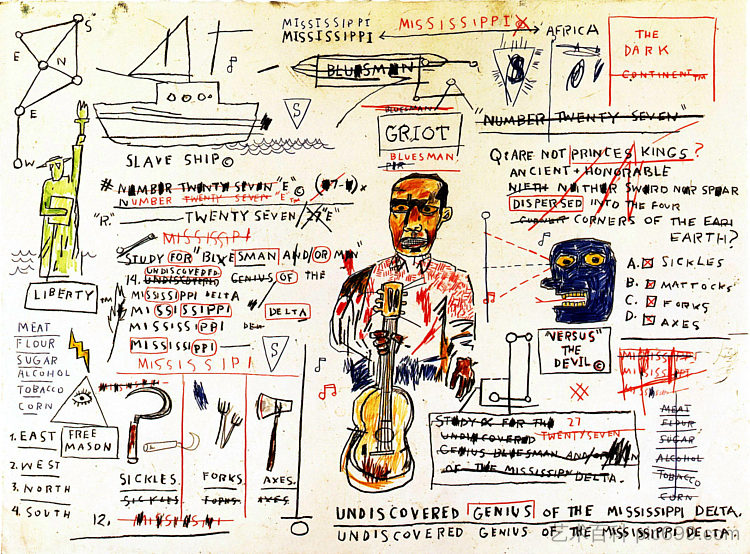 S
E
N
E
W
SLAVE SHIP©
S
MISSISSIPPI
MISSISSIPPI
MISSISSIPPI
AFRICA
THE
DARK
CONTINENT™
BLUESMAN
BLUESMAN
GRIOT
BLUESMAN
S
"NUMBER TWENTY SEVEN"
Q: ARE NOT PRINCES KINGS?
ANCIENT + HONORABLE
NIETH NEITHER SWORD NOR SPEAR
DISPERSED INTO THE FOUR
CORNERS OF THE EARI
EARTH?
A. SICKLES
B. MATTOCKS
C. FORKS
D. AXES
"VERSUS"
THE
DEVIL©
# NUMBER TWENTY SEVEN "E"©
NUMBER TWENTY SEVEN "E"™
"R." TWENTY SEVEN/27"E"
MISSISSIPI
STUDY FOR "BLUESMAN AND/OR MAN"
UNDISCOVERED
14. UNDISCOVERED GENIUS OF THE
MISSISSIPPI DELTA
MISSISSIPPI DELTA
MISSISSIPPI DEL
MISSISSIPPI
MISSISSIPI
S
LIBERTY™
MEAT
FLOUR
SUGAR
ALCOHOL
TOBACCO
CORN
FREE
MASON
1. EAST
2. WEST
3. NORTH
4. SOUTH
SICKLES.
SICKLES.
FORKS.
FORKS.
AXES.
AXES.
12. MISSISSIPI
STUDY FOR THE 27
UNDISCOVERED TWENTYSEVEN
GENIUS BLUESMAN AND/OR MAN
OF THE MISSISSIPPI DELTA.
MISSISSIPPI
MISSISSIPPI
MEAT
FLOUR
SUGAR
ALCOHOL
TOBACCO
CORN
UNDISCOVERED GENIUS OF THE MISSISSIPPI DELTA.
UNDISCOVERED GENIUS OF THE MISSISSIPPI DELTA